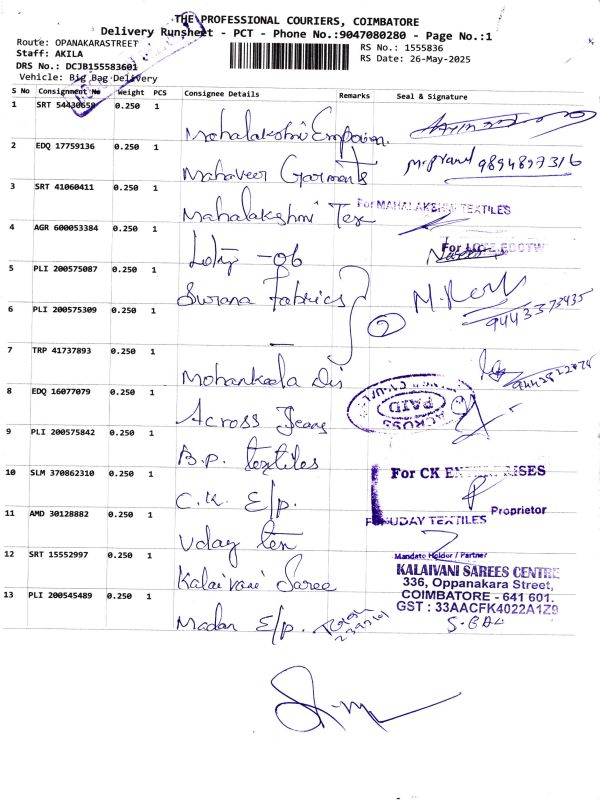 THE PROFESSIONAL COURIERS, COIMBATORE
Delivery Runsheet - PCT - Phone No.:9047080280 - Page No.:1
Route: OPANAKARASTREET
Staff: AKILA
DRS No.: DCJB155583601
Vehicle: Big Bag Delivery
RS No.: 1555836
RS Date: 26-May-2025
S No Consignment No Weight PCS Consignee Details Remarks Seal & Signature
1 SRT 54430658 0.250 1 Mahalakshmi Emporium
2 EDQ 17759136 0.250 1 Mahaveer Garments 9894897316
3 SRT 41060411 0.250 1 Mahalakshmi Tex For MAHALAKSHMI TEXTILES
4 AGR 600053384 0.250 1 For
5 PLI 200575087 0.250 1 Swana Fabrics
6 PLI 200575309 0.250 1 2
7 TRP 41737893 0.250 1 Mohankala
8 EDQ 16077079 0.250 1 Across Jeans ACROSS PAID
9 PLI 200575842 0.250 1 B.p. textiles
10 SLM 370862310 0.250 1 C.K. E/p. For CK ENTERPRISES
Proprietor
11 AMD 30128882 0.250 1 Uday tex UDAY TEXTILES
Mandate Holder / Partner
12 SRT 15552997 0.250 1 Kalaivani Saree KALAIVANI SAREES CENTRE
336, Oppanakara Street,
COIMBATORE - 641 601.
GST : 33AACFK4022A1Z9
13 PLI 200545489 0.250 1 Madan E/p.